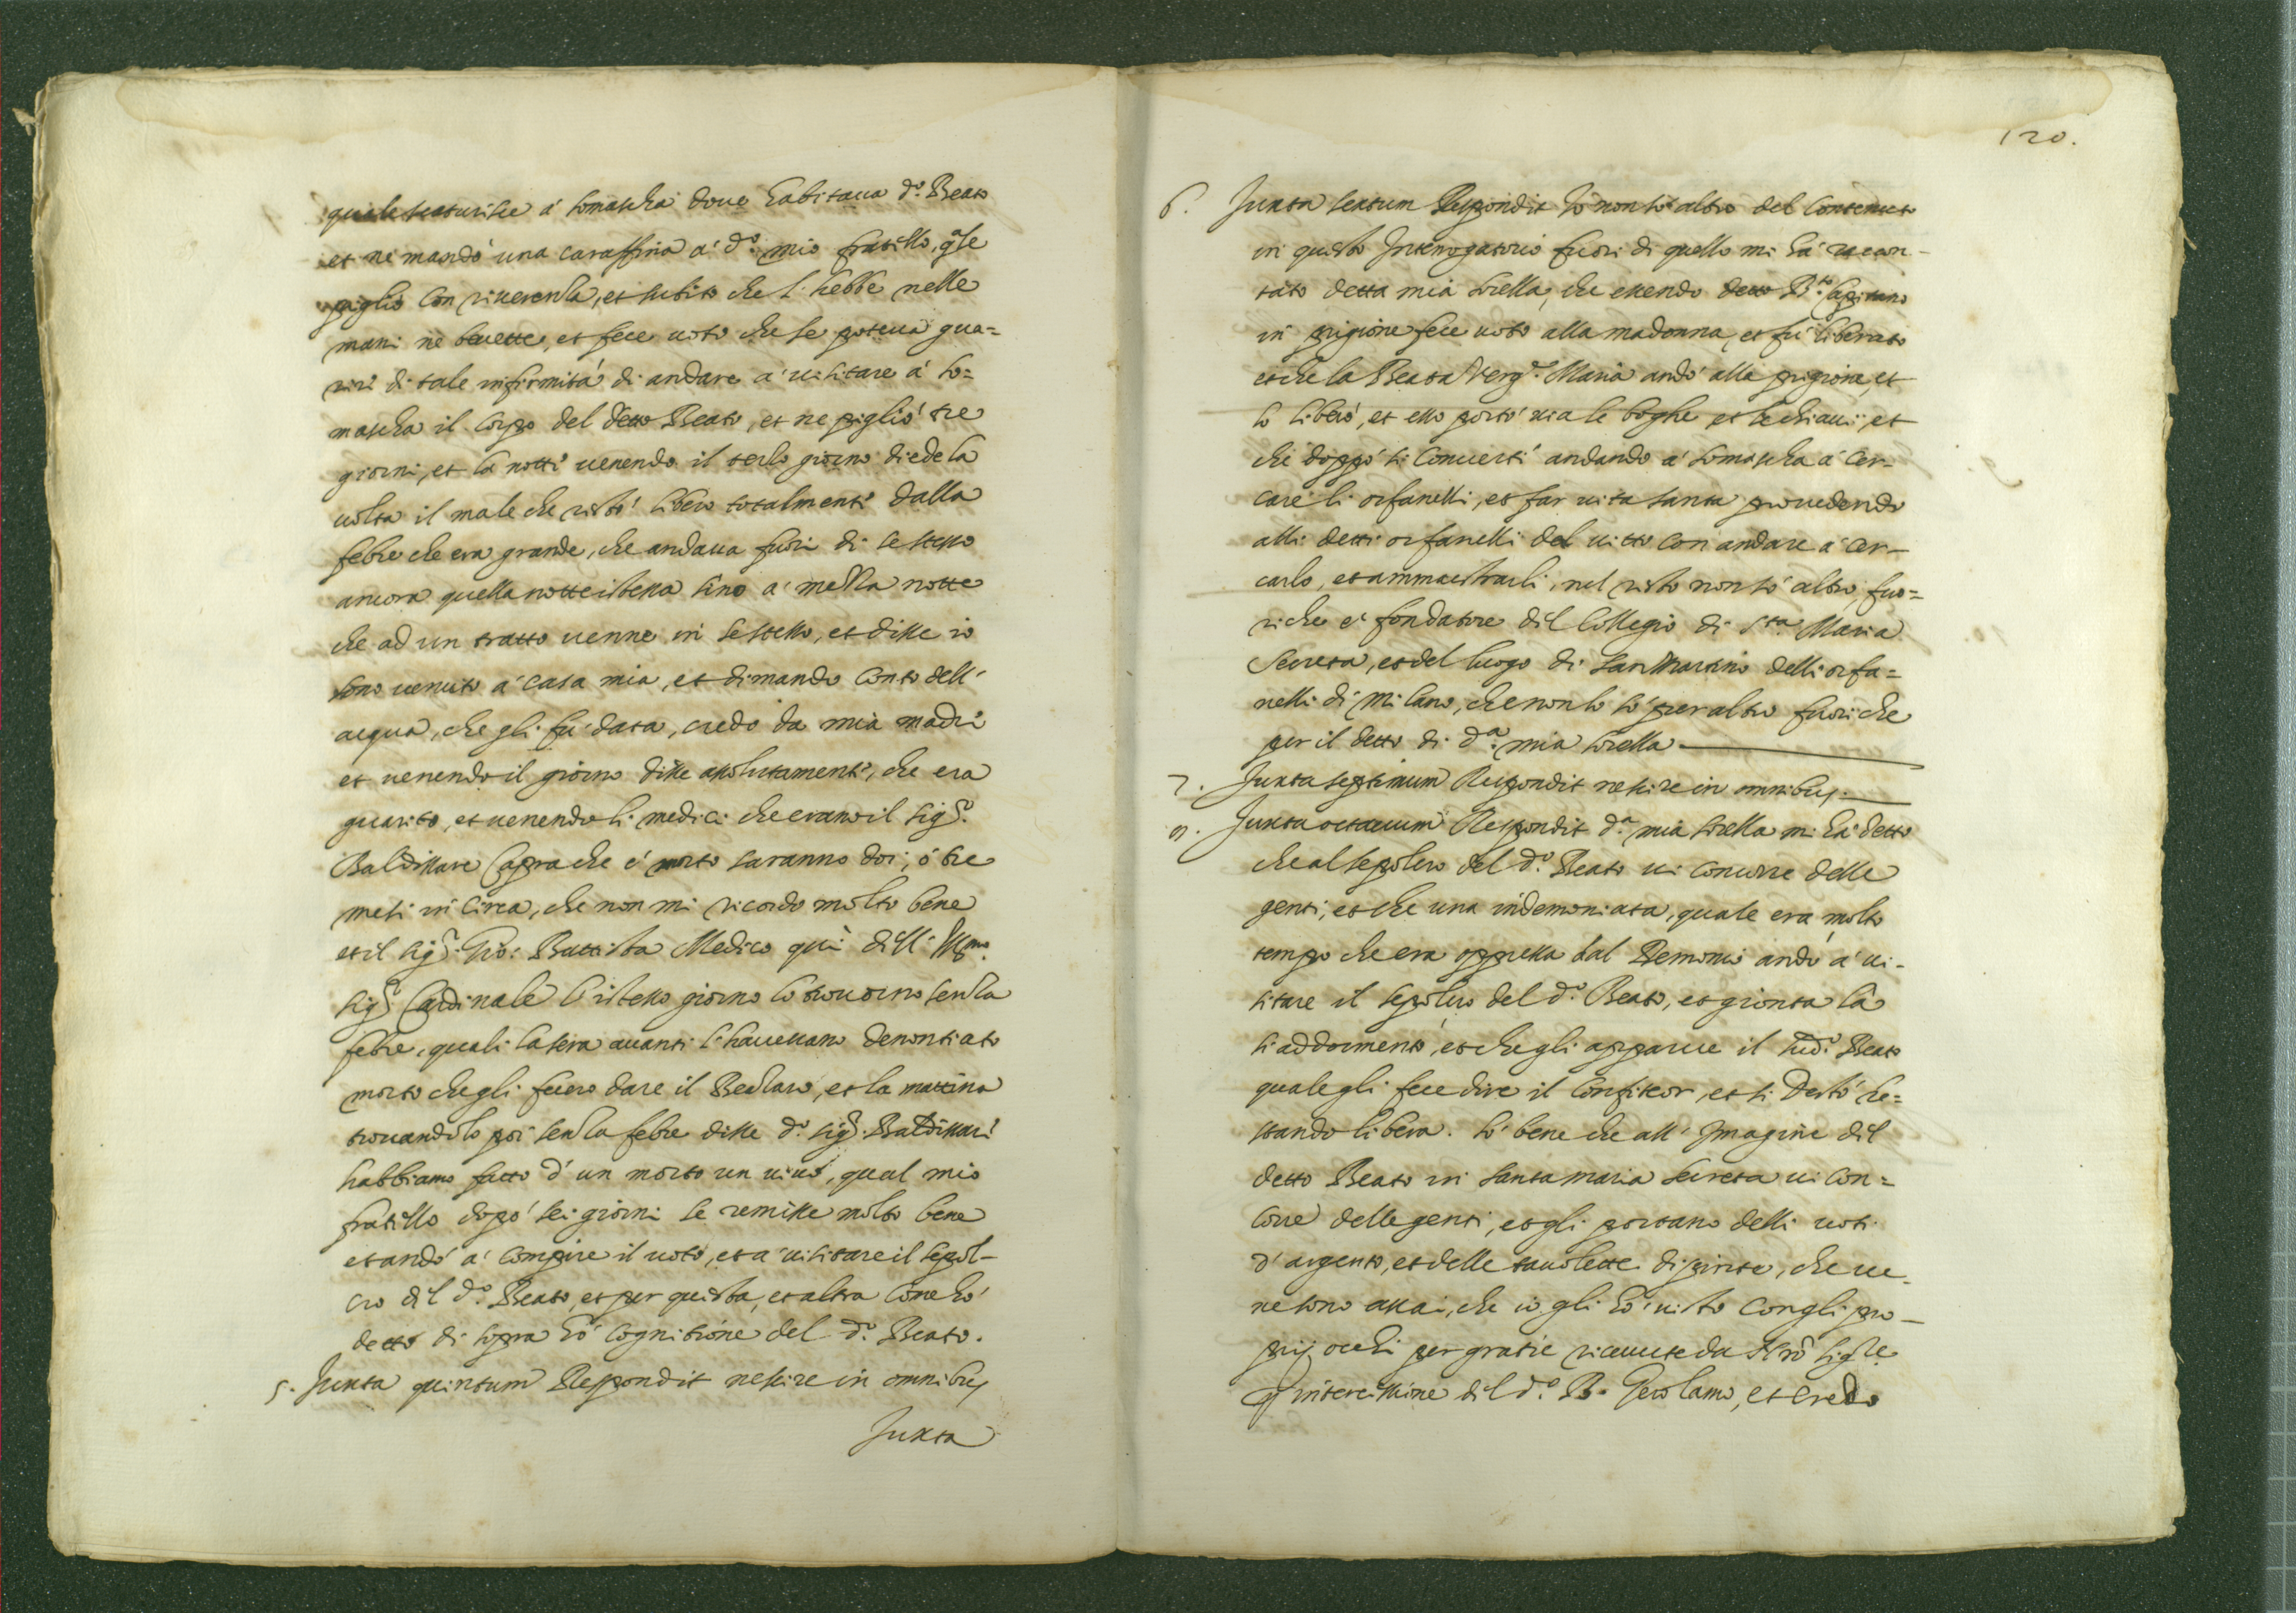 quale scaturisce á somascha doue habitaua d.º Beato
et ne mandò una caraffina a' d.º mio fratello, qle
pigliò con riuerenza, et subito che l'hebbe nelle
mani ne beuette, et fece uoto che se poteua gua=
rire di tale infirmitá di andare a' uisitare á so=
mascha il corpo del detto Beato, et ne pigliò tre
giorni, et la notte uenendo il terzo giorno diede la
uolta il male che restò libero totalmente dalla
febre che era grande, che andaua fuori di se stesso
ancora quella notte istessa sino a' mezza notte
che ad un tratto uenne in se stesso, et disse io
sono uenuto a' casa mia, et dimandò conto dell'
acqua, che gli fú data, credo da mia madre
et uenendo il giorno disse assolutamente, che era
guarito, et uenendo li medici che erano il sig.r
Baldissare Capra che é morto saranno doi, ó tre
mesi in circa, che non mi ricordo molto bene
et il sig.r Gio: Battista Medico qui dell' Illmo.
sig.r Cardinale l'istesso giorno lo trouorno senza
febre, quali la sera auanti l'haueuano denontiato
morto che gli fecero dare il Bedzaro, et la mattina
trouandolo poi senza febre disse d.º sig.r Baldissare
habbiamo fatto d'un morto un uiuo, qual mio
fratello dopó sei giorni se remisse molto bene
et andó a' compire il uoto, et a' uisitare il sepol-
cro del d.º Beato, et per questa, et altra come hó
detto di sopra hó cognitione del d.º Beato.
5. Juxta quintum Respondit nescire in omnibus
Juxta
120.
6. Juxta sextum Respondit Io non só altro del contenuto
in questo Interrogatorio fuori di quello mi há raccon-
tato detta mia sorella, che essendo detto B.to Capitano
in prigione fece uoto alla madonna, et fú liberato
et che la Beata Verg.e Maria andó alla prigione, et
lo liberó, et esso portó uia le boghe et le chiaui, et
che doppó si conuertí andando a' somascha a' cer-
care li orfanelli, et far uita santa prouedendo
alli detti orfanelli del uitto con andare a' cer-
carlo, et ammaestrarli, nel resto non só altro, fuo=
ri che é fondatore del Collegio di S.ta Maria
Secreta, et del luogo di San Martino delli orfa=
nelli di Milano, che non lo só per altro fuori che
per il detto di d.a mia sorella
7. Juxta septimum Respondit nescire in omnibus.
8. Juxta octauum Respondit d.a mia sorella mi há detto
che al sepolcro del d.º Beato ui concorre delle
genti, et che una indemoniata, quale era molto
tempo che era oppressa dal Demonio andó a' ui-
sitare il sepolcro del d.º Beato, et gionta lá
si addormentó, et che gli apparue il sud.º Beato
quale gli fece dire il Confiteor, et si destó re=
stando libera. Só bene che all' Imagine del
detto Beato in santa maria secreta ui con=
corre delle genti, et gli portano delli uoti
d'argento, et delle tauolette dipinte, che ue
ne sono assai, che io gli hó uisto con gli pro-
prij occhi per gratie riceuute da Nro Sigre
p intercissione del d.º B. Gerolamo, et credo